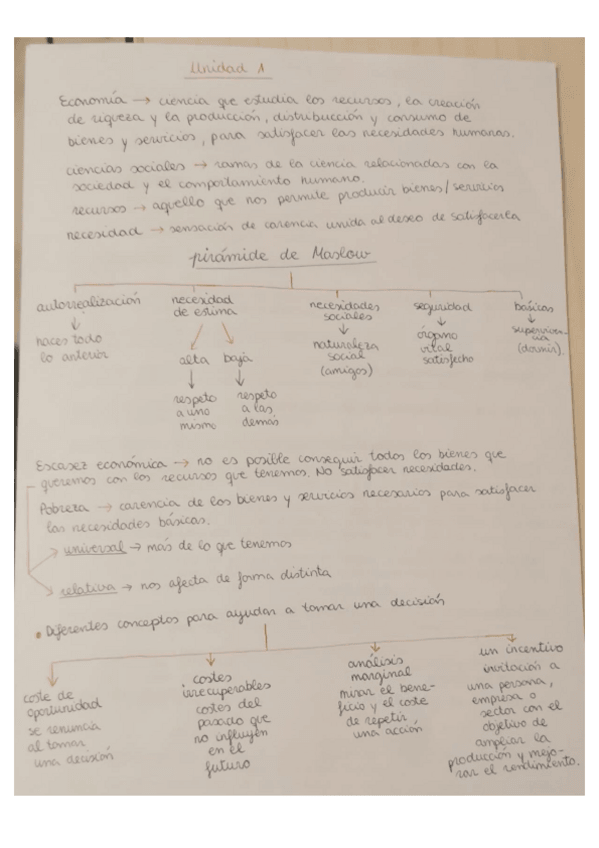 Unidad 1
Economía → ciencia que estudia los recursos, la creación
de riqueza y la producción, distribucción y consumo de
bienes y servicios, para satisfacer las necesidades humanas.
ciencias sociales → ramas de la ciencia relacionadas con la
sociedad y el comportamiento humano.
recursos → aquello que nos permite producir bienes/servicios
necesidad → sensación de carencia unida al deseo de satisfacerla
pirámide de Maslow
autorrealización
↓
haces todo
lo anterior
necesidad
de estima
alta
↓
respeto
a uno
mismo
baja
↓
respeto
a los
demás
necesidades
sociales
↓
naturaleza
social
(amigos)
seguridad
↓
órgano
vital
satisfecho
básicas
↓
superviven-
cia
(dormir).
Escasez económica → no es posible conseguir todos los bienes que
queremos con los recursos que tenemos. No satisfacer necesidades.
Pobreza → carencia de los bienes y servicios necesarios para satisfacer
las necesidades básicas.
universal → más de lo que tenemos
relativa → nos afecta de forma distinta
• Diferentes conceptos para ayudar a tomar una decisión
coste de
oportunidad
se renuncia
al tomar
una decisión
costes
irrecuperables
costes del
pasado que
no influyen
en el
futuro
análisis
marginal
mirar el bene-
ficio y el coste
de repetir
una acción
un incentivo
invitación a
una persona,
empresa o
sector con el
objetivo de
ampliar la
producción y mejo-
rar el rendimiento.